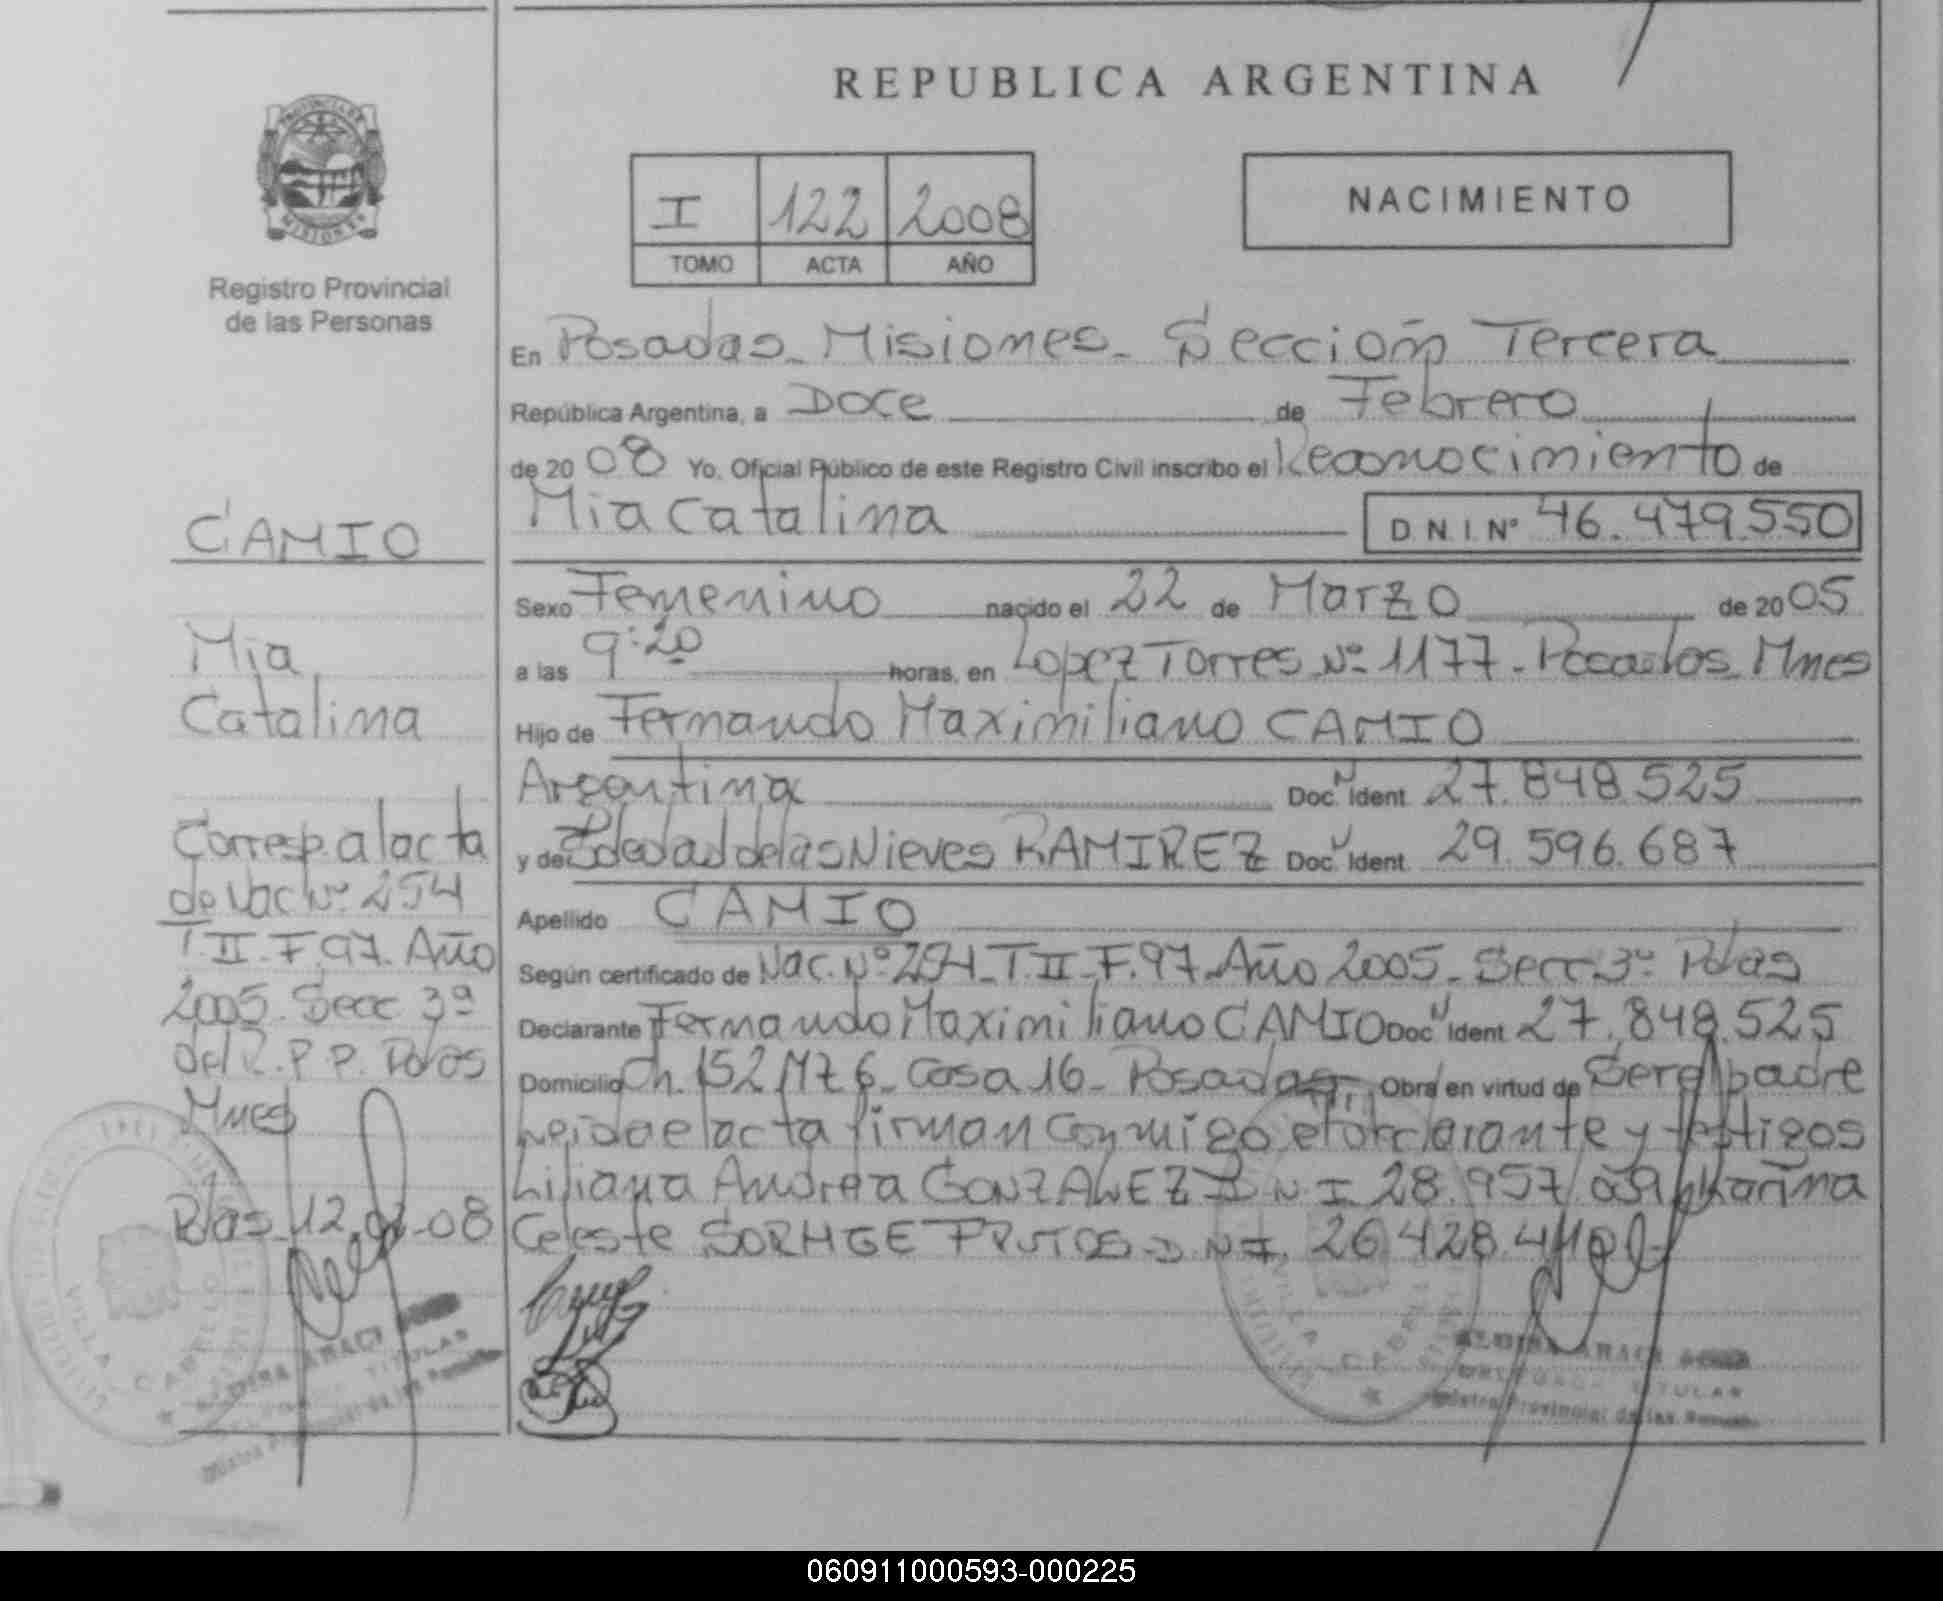 REPUBLICA ARGENTINA
PROVINCIA DE
MISIONES
Registro Provincial
de las Personas
I 122 2008
TOMO ACTA AÑO
NACIMIENTO
CAMIO
Mia
Catalina
Corresp. al acta
de Nac Nº 254
T. II - F. 97. Año
2005. Secc 3ª
del R. P. P. Pdas
Mnes
Pdas 12.02.08
En Posadas - Misiones - Sección Tercera
República Argentina, a Doce de Febrero
de 2008 Yo, Oficial Público de este Registro Civil inscribo el Reconocimiento de
Mia Catalina D.N.I. Nº 46.479.550
Sexo Femenino nacido el 22 de Marzo de 2005
a las 9:20 horas, en Lopez Torres Nº 1177 - Posadas Mnes
Hijo de Fernando Maximiliano CAMIO
Argentina Doc. Ident. 27.848.525
y de Soledad de las Nieves RAMIREZ Doc. Ident. 29.596.687
Apellido CAMIO
Según certificado de Nac. Nº 254 - T. II - F. 97 - Año 2005 - Secc 3ª Pdas
Declarante Fernando Maximiliano CAMIO Doc. Ident 27.848.525
Domicilio Ch. 152 Mz 6 - Casa 16 - Posadas, Obra en virtud de Ser el padre
Leida el acta firman conmigo el declarante y testigos
Liliana Andrea GONZALEZ D.N.I. 28.957
Celeste D.N.I. 26.428
VILLA CABELLO
ARACI
TITULAR
Registro Provincial de las Personas
VILLA CABELLO
ARACI
TITULAR
Registro Provincial de las Personas
060911000593-000225